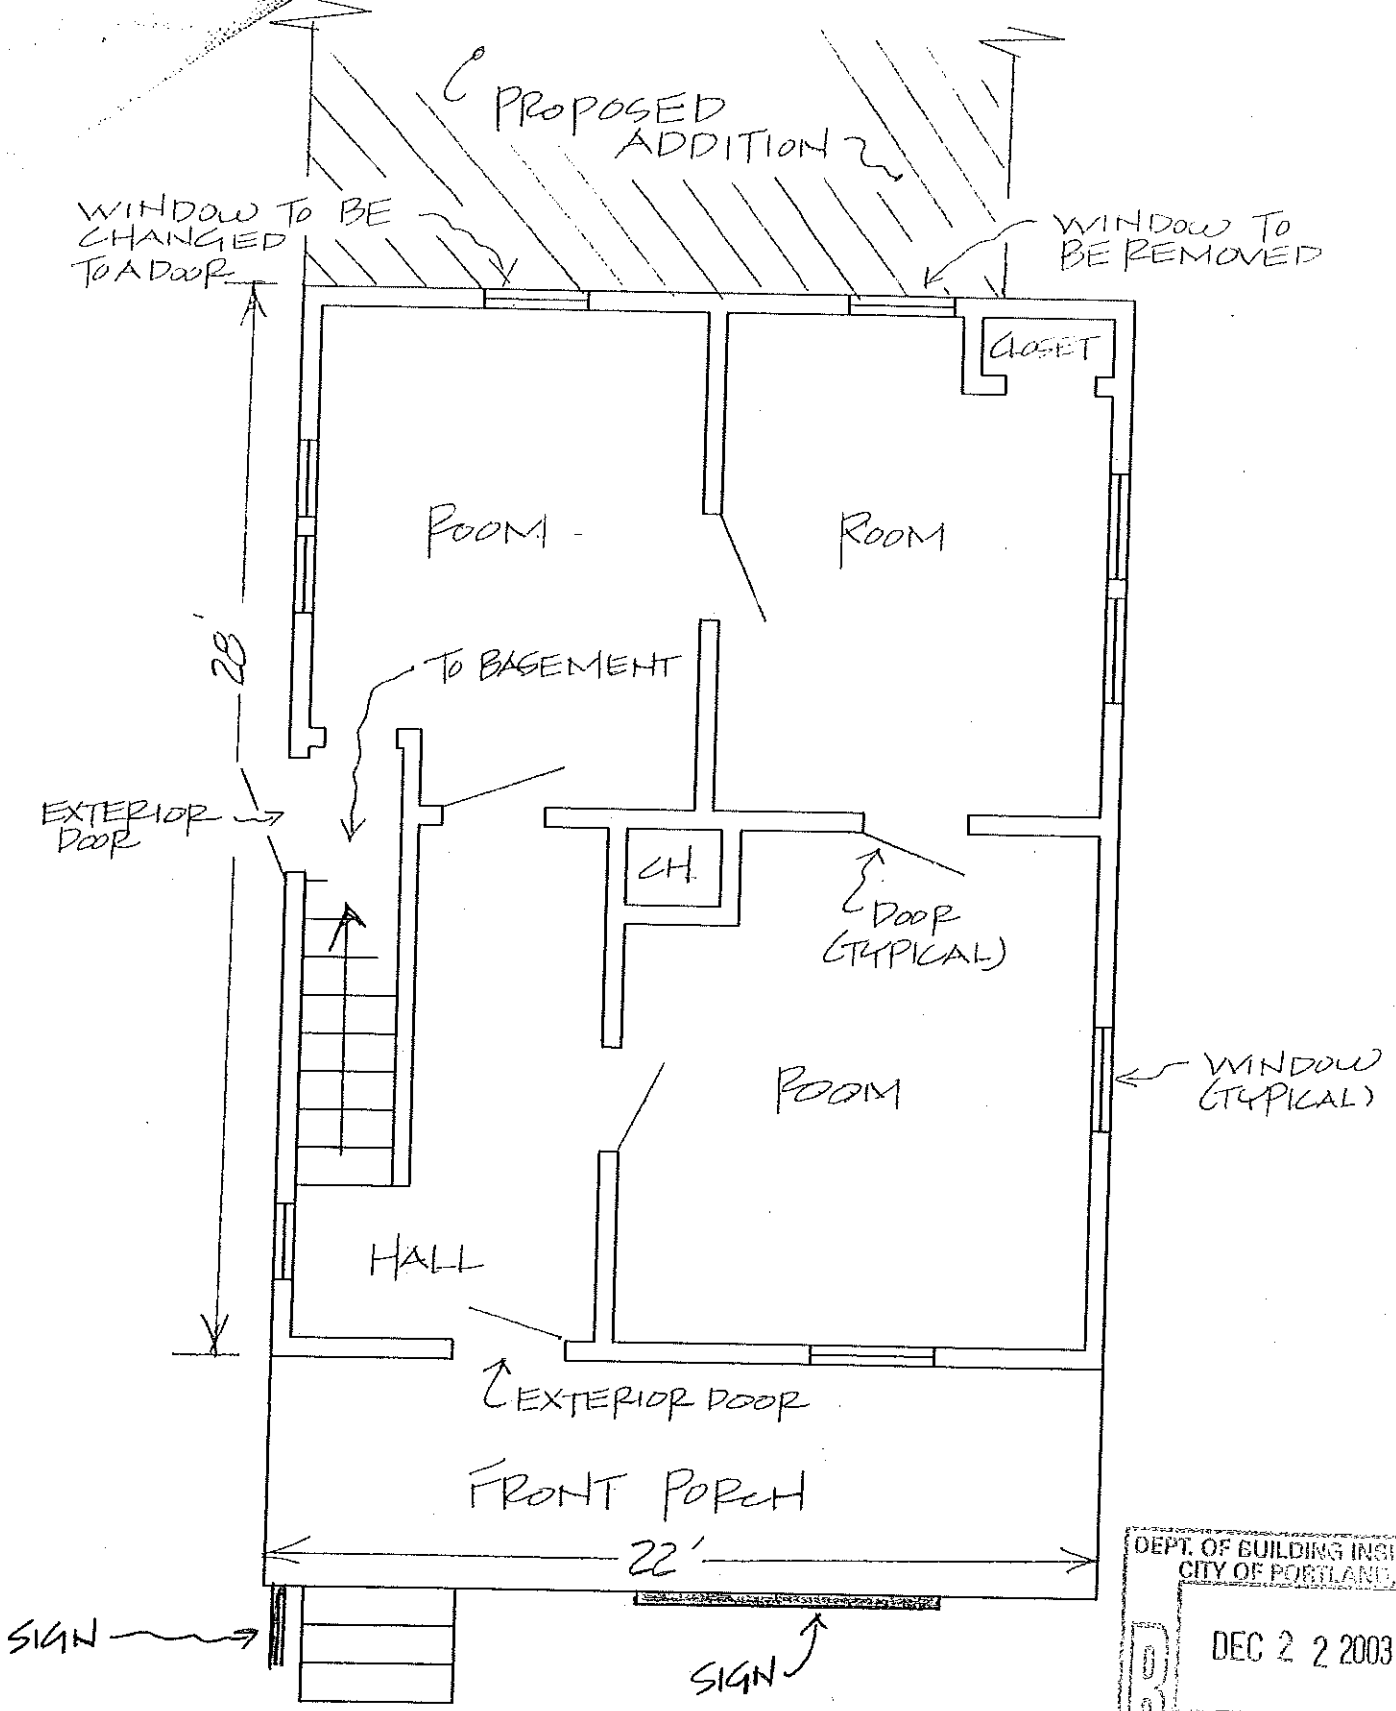 PROPOSED
ADDITION
WINDOW TO BE
CHANGED
TO A DOOR
WINDOW TO
BE REMOVED
CLOSET
ROOM
ROOM
28'
TO BASEMENT
EXTERIOR
DOOR
CH.
DOOR
(TYPICAL)
ROOM
WINDOW
(TYPICAL)
HALL
EXTERIOR DOOR
FRONT PORCH
22'
SIGN
SIGN
DEPT. OF BUILDING
CITY OF PORTLAND,
DEC 2 2 2003